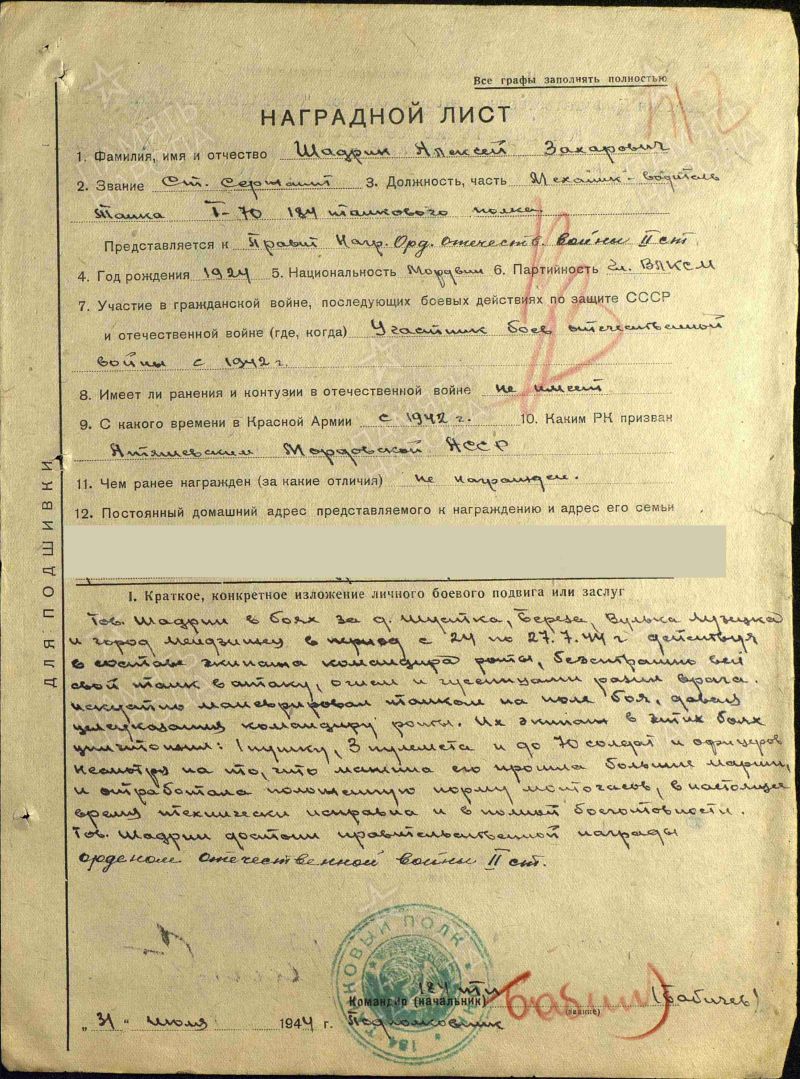 Все графы заполнять полностью
НАГРАДНОЙ ЛИСТ
1. Фамилия, имя и отчество Шадрин Алексей Захарович
2. Звание Ст. Сержант 3. Должность, часть Механик-водитель
танка Т-70 184 танкового полка.
Представляется к Правит Нагр. Орд. Отечеств. войны II ст
4. Год рождения 1924 5. Национальность Мордвин 6. Партийность Чл. ВЛКСМ
7. Участие в гражданской войне, последующих боевых действиях по защите СССР
и отечественной войне (где, когда) Участник боев отечественной
войны с 1942 г.
8. Имеет ли ранения и контузии в отечественной войне не имеет
9. С какого времени в Красной Армии с 1942 г. 10. Каким РК призван
Атяшевским Мордовской АССР
11. Чем ранее награжден (за какие отличия) не награжден.
12. Постоянный домашний адрес представляемого к награждению и адрес его семьи
ДЛЯ ПОДШИВКИ
I. Краткое, конкретное изложение личного боевого подвига или заслуг
Тов. Шадрин в боях за д. Береза, Вулька
и город в период с 24 по 27.7.44 г действуя
в составе экипажа командира роты, безстрашно вел
свой танк в атаку, огнем и гусеницами разил врага.
искустно маневрировал танком на поле боя, давал
целеуказания командиру роты. Их экипаж в этих боях
уничтожил: 1 пушку, 3 пулемета и до 70 солдат и офицеров
Несмотря на то, что машина его прошла большие марши,
и отработала положенную норму моточасов, в настоящее
время технически исправна и в полной боеготовности.
Тов. Шадрин достоин правительственной награды
орденом Отечественной войны II ст.
184 ТАНКОВЫЙ ПОЛК
184 тп
Командир (начальник) (Бабичев)
(звание)
„31" июля 1944 г. Подполковник